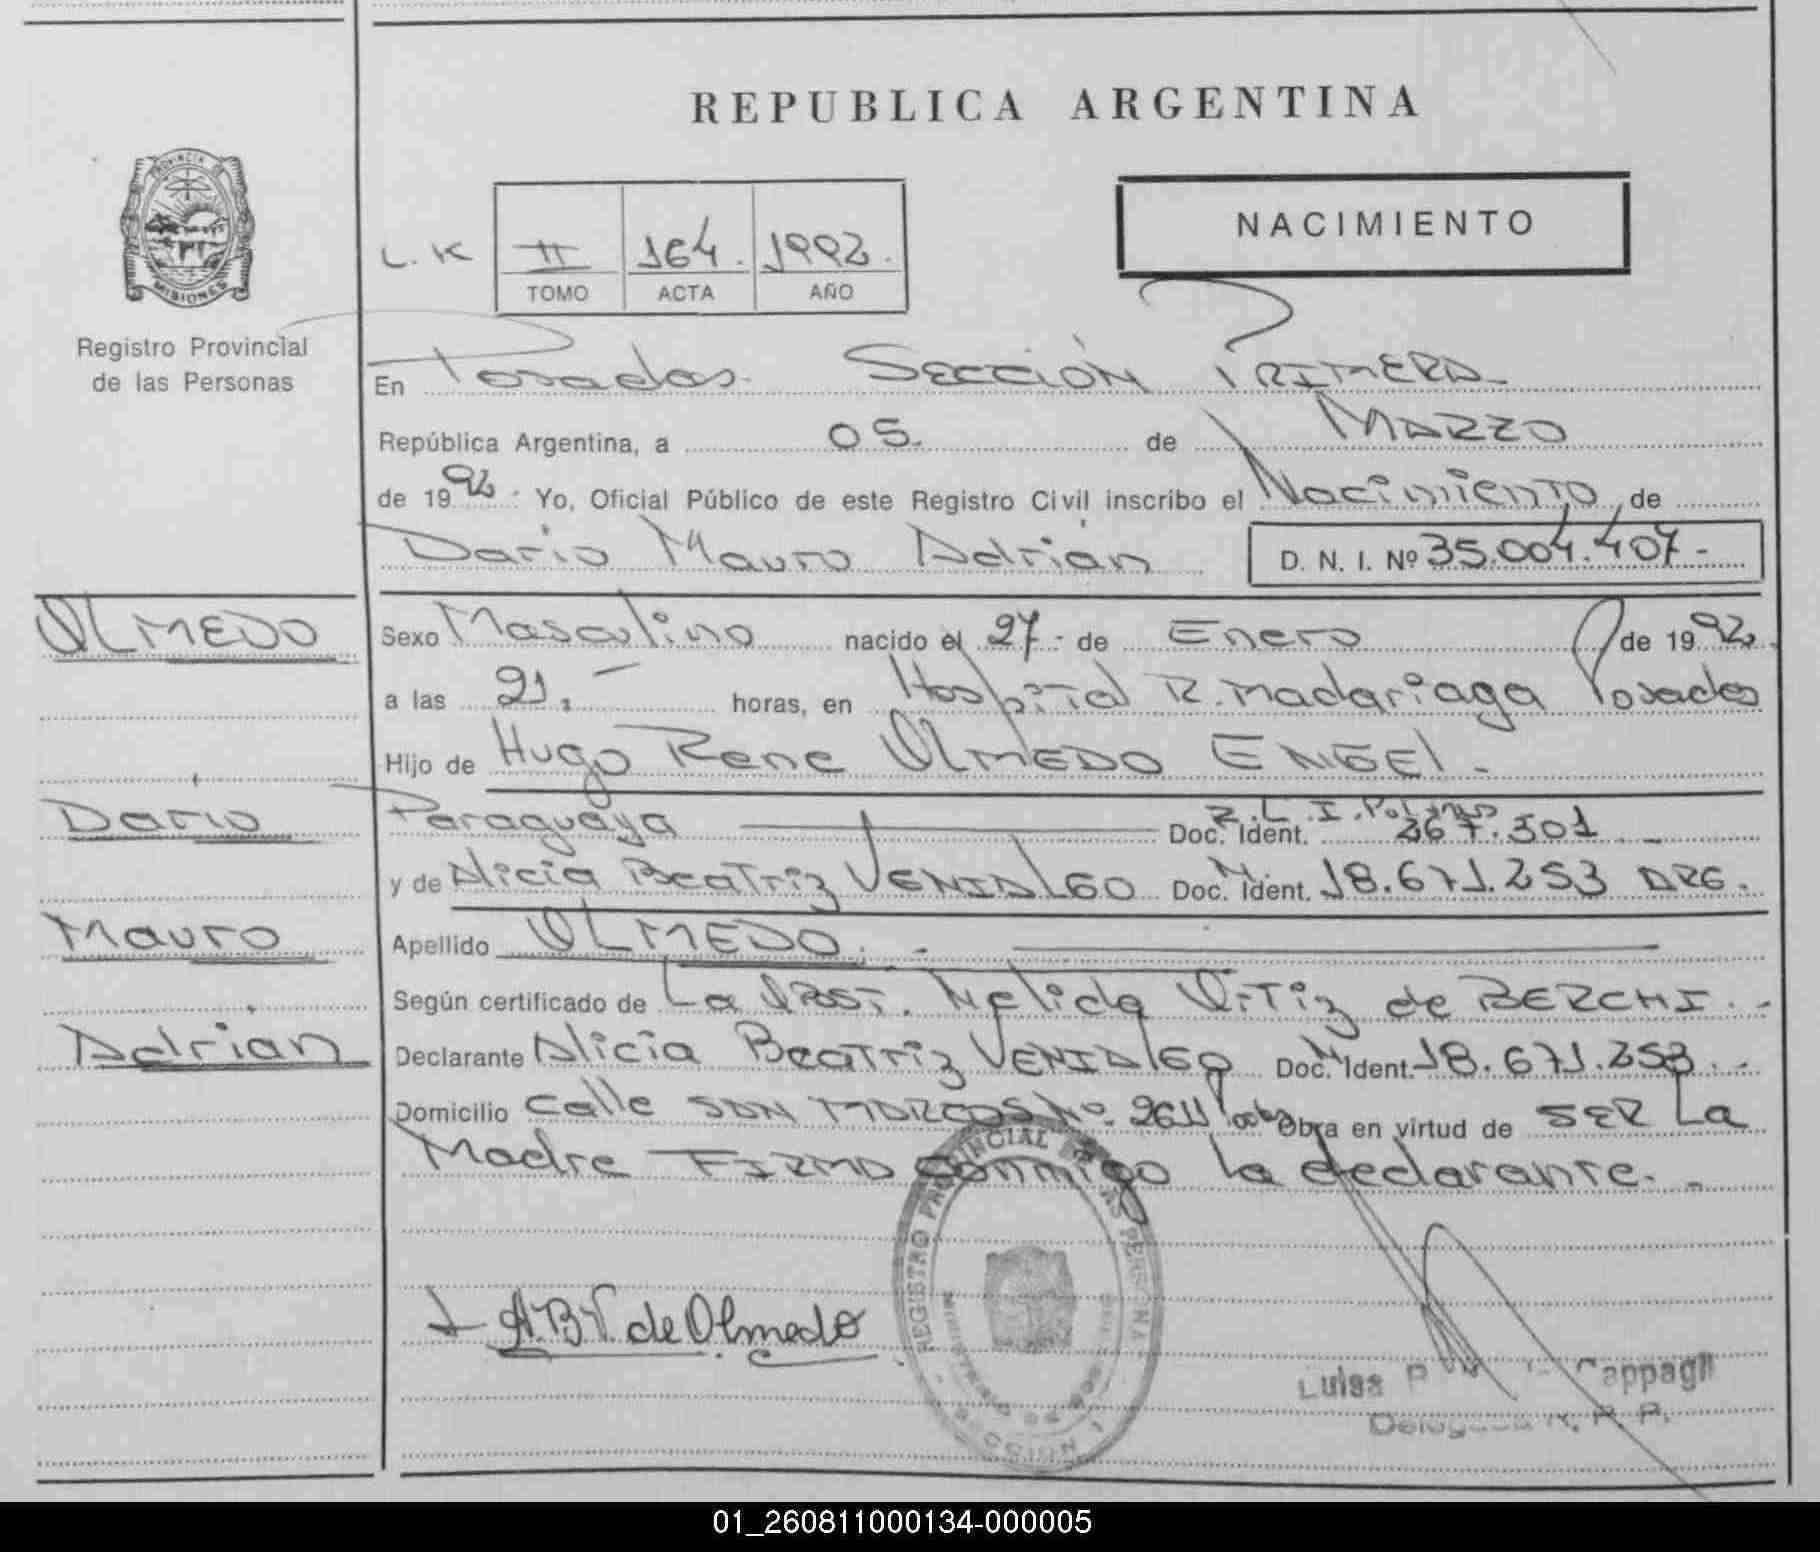 REPUBLICA ARGENTINA
NACIMIENTO
PROVINCIA DE
MISIONES
Registro Provincial
de las Personas
L. K II 164. 1992.
TOMO ACTA AÑO
En Posadas Sección PRIMERA
República Argentina, a 05. de MARZO
de 1992 : Yo, Oficial Público de este Registro Civil inscribo el Nacimiento de
Dario Mauro Adrián D. N. I. Nº 35.004.407-
OLMEDO
Dario
Mauro
Adrián
Sexo Masculino nacido el 27- de Enero de 1992.
a las 21.- horas, en Hospital R. madariaga Posadas
Hijo de Hugo Rene OLMEDO ENGEl.
Paraguaya Doc. Ident. 267.301
y de Alicia BeaTriz VENIALGO Doc. Ident. 18.671.253 ARG.
Apellido OLMEDO.-
Según certificado de La OBST. Nelida OrTiz de BERCHI.-
Declarante Alicia BeaTriz VENIALGO Doc. Ident. 18.671.253.-
Domicilio Calle SAN MARCOS Nº 2611 Obra en virtud de SER La
Madre FIRMA conmigo la declarante.-
A.B.V. de Olmedo
REGISTRO PROVINCIAL DE LAS PERSONAS
MINISTERIO DE GOBIERNO
SECCION 1
Luisa Cappagli
Delegada R. P. P.
01_260811000134-000005